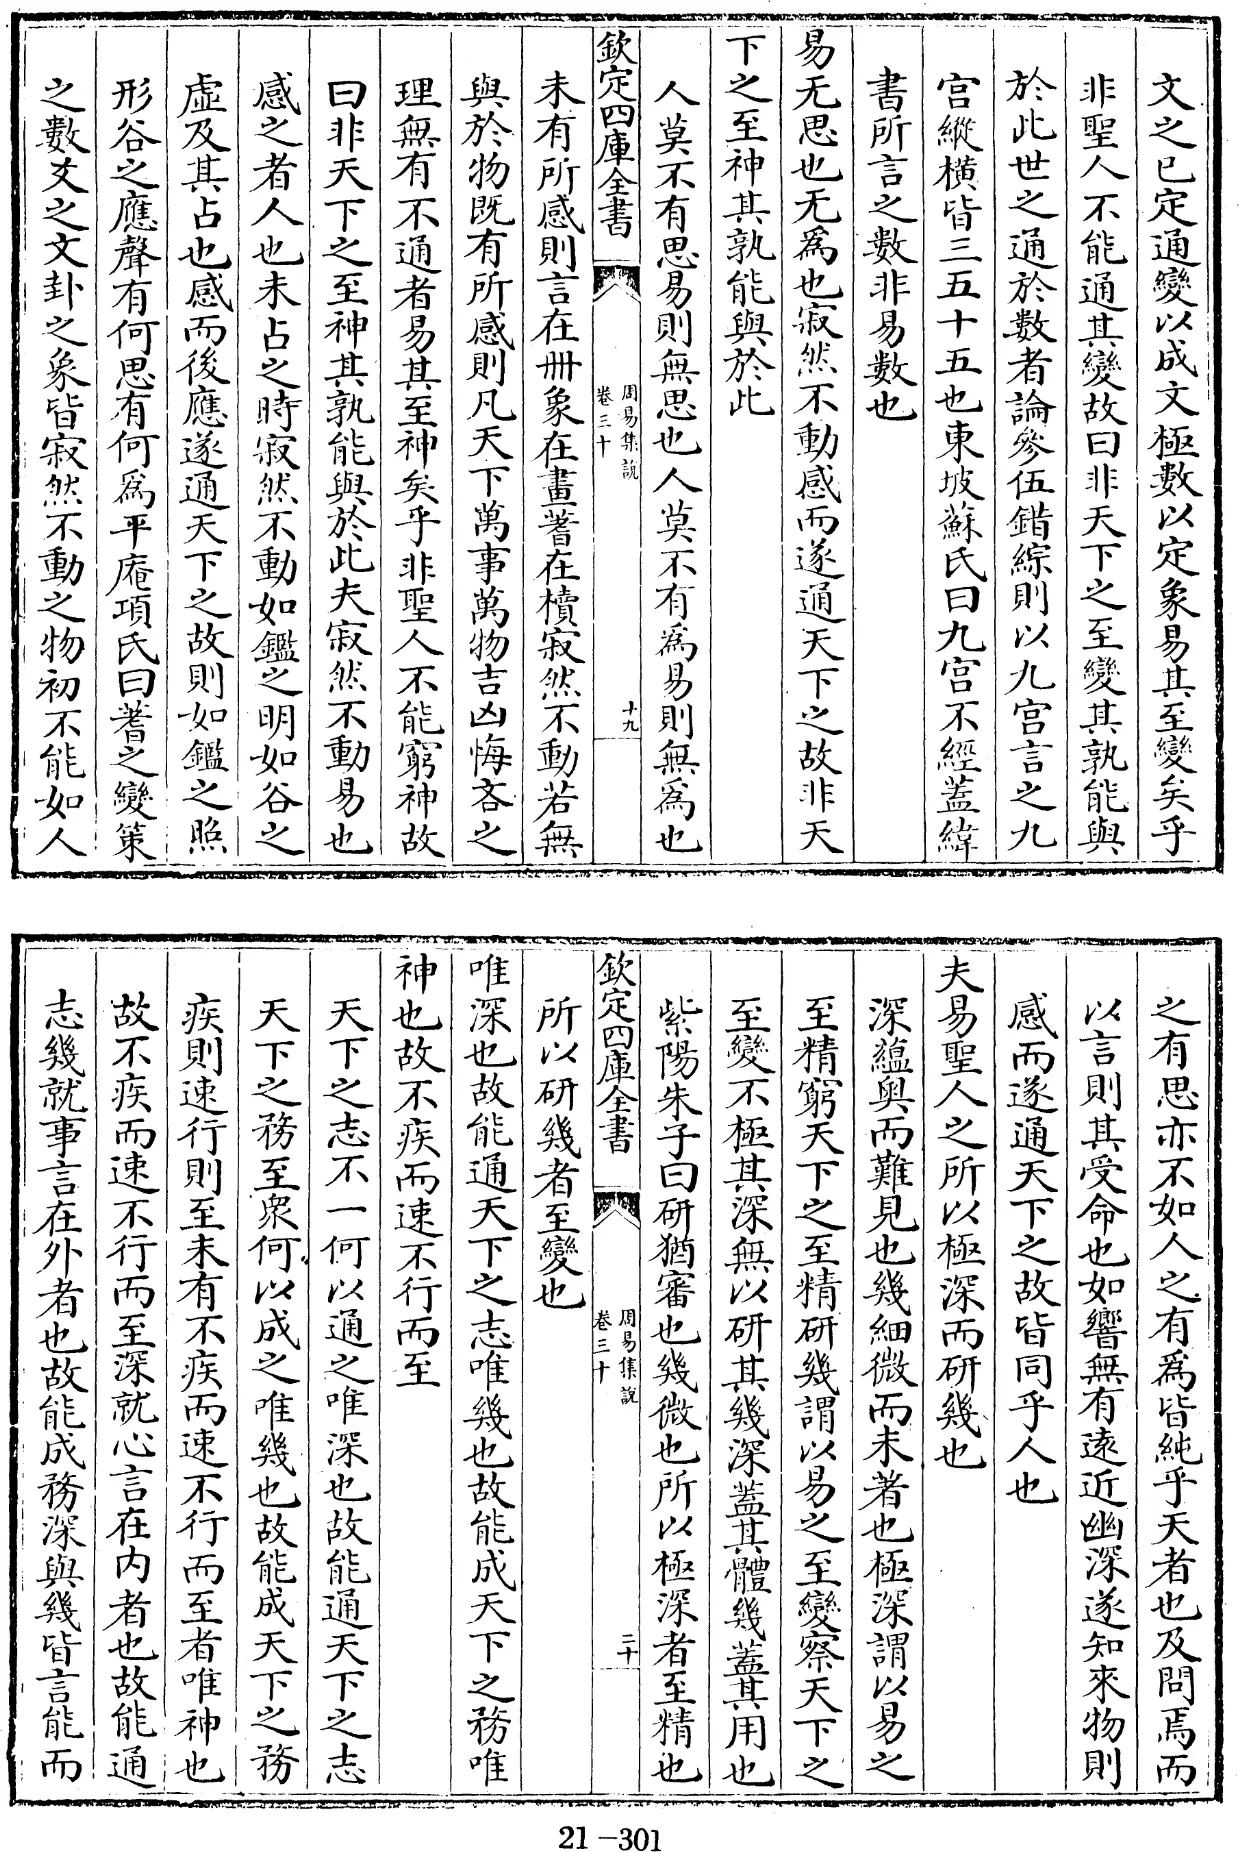 文之已定通變以成文極數以定象易其至變矣乎
非聖人不能通其變故曰非天下之至變其孰能與
於此世之通於數者論參伍錯綜則以九宫言之九
宫縱横皆三五十五也東坡蘇氏曰九宫不經蓋緯
書所言之數非易數也
易无思也无為也寂然不動感而遂通天下之故非天
下之至神其孰能與於此
人莫不有思易則無思也人莫不有為易則無為也
欽定四庫全書
周易集說
卷三十
十九
未有所感則言在冊象在畫蓍在櫝寂然不動若無
與於物既有所感則凡天下萬事萬物吉凶悔吝之
理無有不通者易其至神矣乎非聖人不能窮神故
曰非天下之至神其孰能與於此夫寂然不動易也
感之者人也未占之時寂然不動如鑑之明如谷之
虚及其占也感而後應遂通天下之故則如鑑之照
形谷之應聲有何思有何為平庵項氏曰蓍之變策
之數爻之文卦之象皆寂然不動之物初不能如人
之有思亦不如人之有為皆純乎天者也及問焉而
以言則其受命也如響無有遠近幽深遂知來物則
感而遂通天下之故皆同乎人也
夫易聖人之所以極深而研幾也
深蘊奥而難見也幾細微而未著也極深謂以易之
至精窮天下之至精研幾謂以易之至變察天下之
至變不極其深無以研其幾深蓋其體幾蓋其用也
紫陽朱子曰研猶審也幾微也所以極深者至精也
欽定四庫全書
周易集說
卷三十
二十
所以研幾者至變也
唯深也故能通天下之志唯幾也故能成天下之務唯
神也故不疾而速不行而至
天下之志不一何以通之唯深也故能通天下之志
天下之務至衆何以成之唯幾也故能成天下之務
疾則速行則至未有不疾而速不行而至者唯神也
故不疾而速不行而至深就心言在内者也故能通
志幾就事言在外者也故能成務深與幾皆言能而
21-301